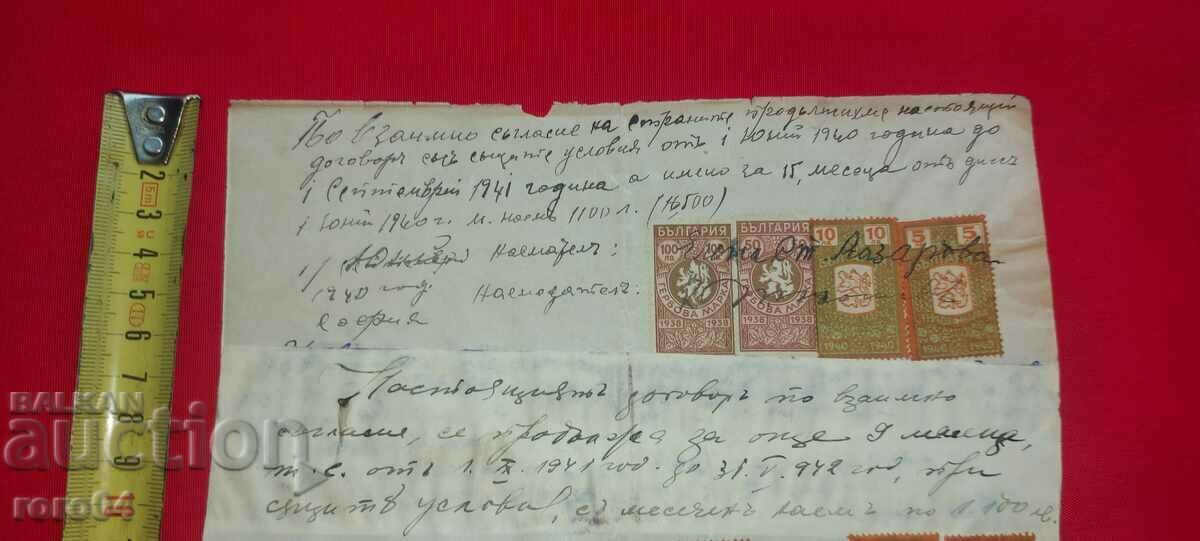 По взаимно съгласие на страните продължихме настоящий
договоръ съ същите условия отъ 1 Юний 1940 година до
1 Септемврий 1941 година а имено за 15, месеца отъ днесъ
1 Юний 1940 г. м. наемъ 1100 л. (16,500)
1/ Наемателъ:
1940 год. Наемодателъ:
София
Ст. Лазарова
БЪЛГАРИЯ
100 ЛВ. 100
ГЕРБОВА МАРКА
1938 1938
БЪЛГАРИЯ
50
ГЕРБОВА МАРКА
1938 1938
10 10
1940 1940
5 5
Настоящиятъ договоръ по взаимно
согласие, се продолжа за още 9 месеца,
т. е. отъ 1. IX. 1941 год. до 31. V. 942 год, при
същитѣ условия, съ месеченъ наемъ по 1.100 лв.
2 5m
3
4
5
6
7
8
9
10
11
BALKAN
auction
roro64